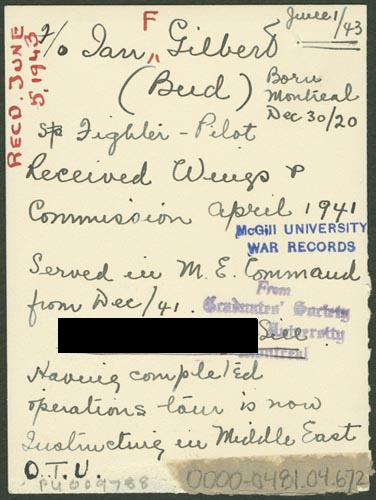 June 1/43
RECD. JUNE
5, 1943
F
F/O Ian ^ Gilbert
(Bud)
Born
Montreal
Dec 30/20
Fighter - Pilot
Received Wings &
Commission April 1941
McGILL UNIVERSITY
WAR RECORDS
Served in M.E. Command
from Dec/41.
From
Graduates' Society
University
Montreal
Having completed
operations tour is now
Instructing in Middle East
O.T.U.
PU009788
0000-0481.04.672